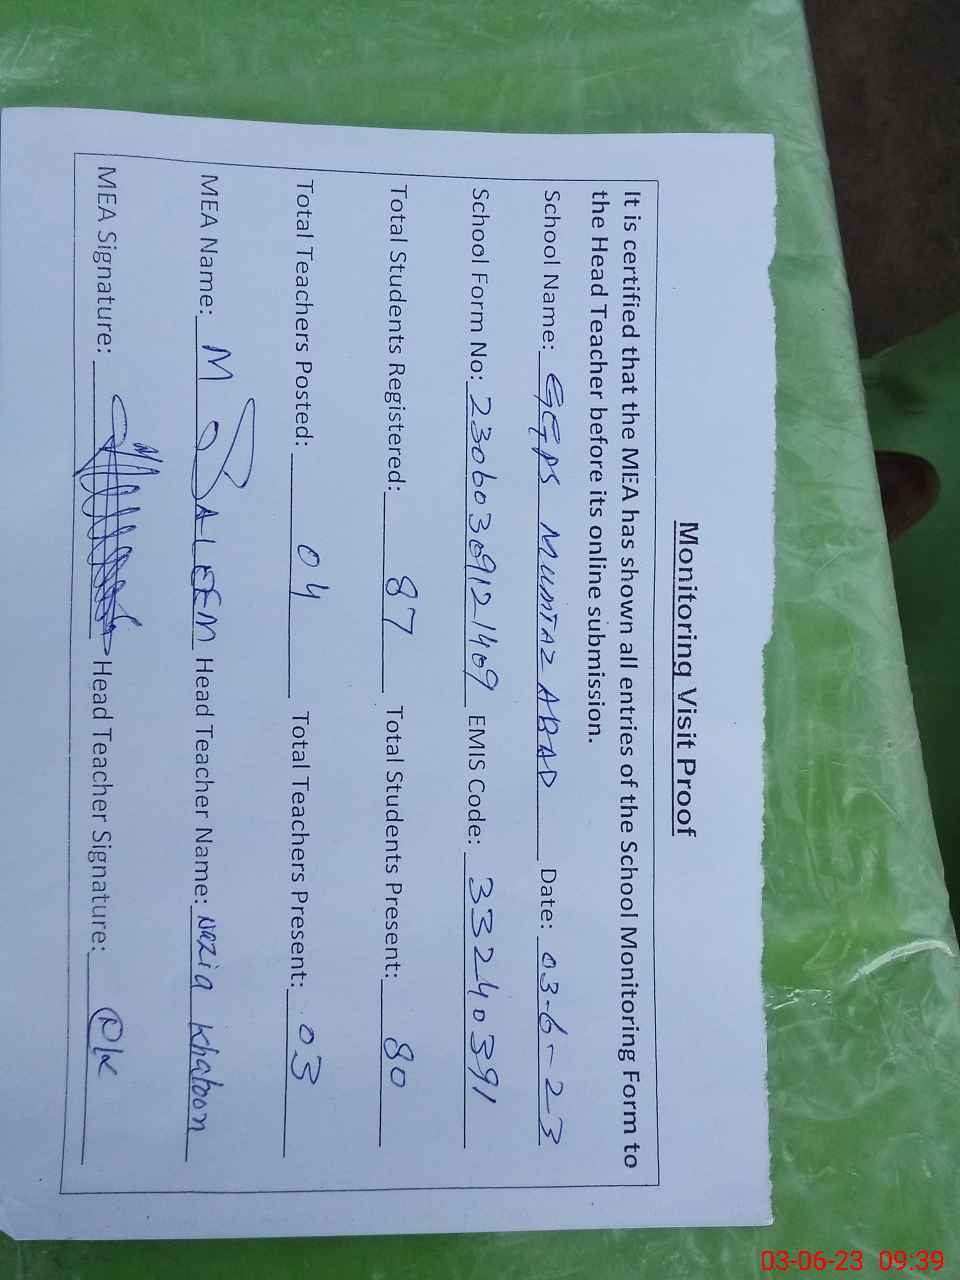 Monitoring Visit Proof
It is certified that the MEA has shown all entries of the School Monitoring Form to
the Head Teacher before its online submission.
School Name: GGPS MUMTAZ ABAD Date: 03-6-23
School Form No: 23060309121409 EMIS Code: 33240391
Total Students Registered: 87 Total Students Present: 80
Total Teachers Posted: 04 Total Teachers Present: 03
MEA Name: M SALEEM Head Teacher Name: Nazia Khatoon
MEA Signature: Head Teacher Signature:
03-06-23 09:39